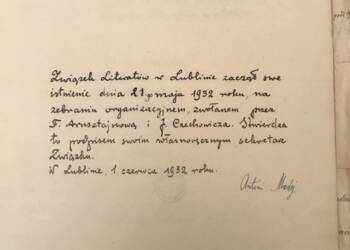 Związek Literatów w Lublinie zaczął swe
istnienie dnia 21 maja 1932 roku, na
zebraniu organizacyjnem, zwołanem przez
F. Arnsztajnową i J. Czechowicza. Stwierdza
to podpisem swoim własnoręcznym sekretarz
Związku.
W Lublinie, 1 czerwca 1932 roku.
Antoni Madej